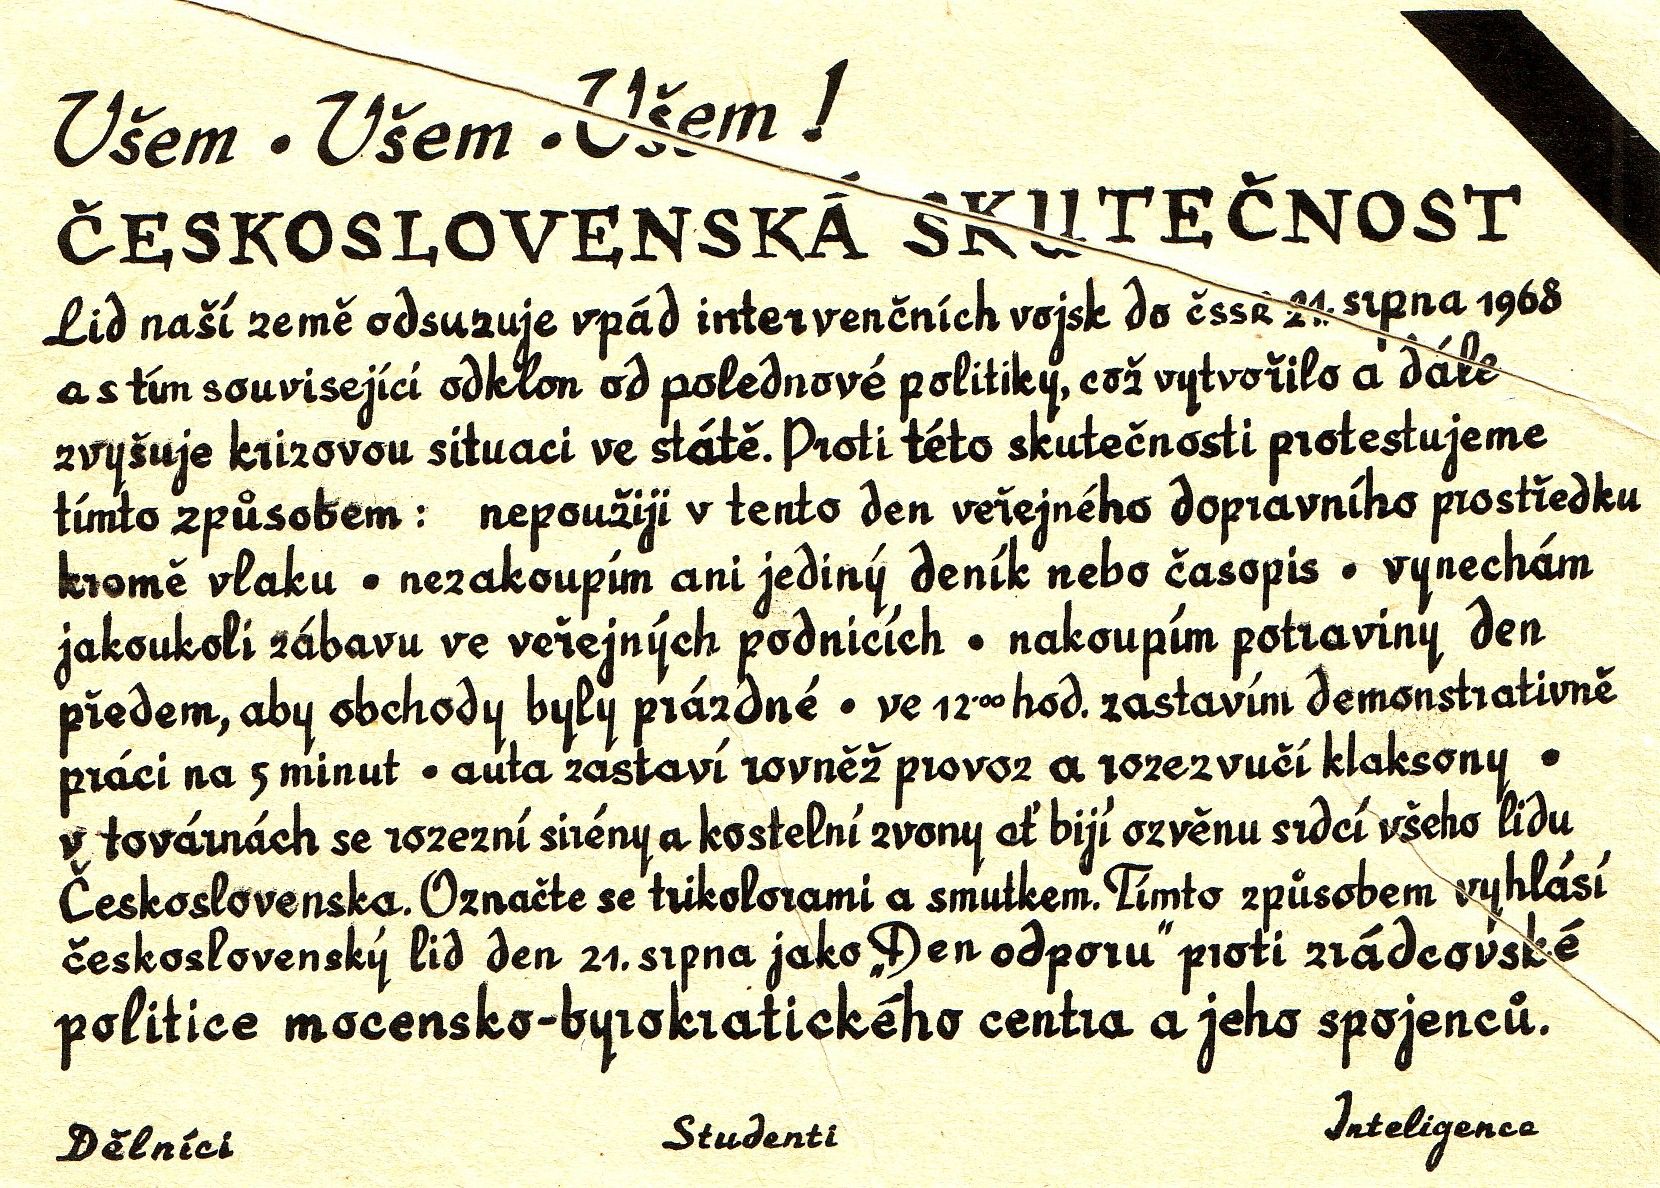 Všem • Všem • Všem !
ČESKOSLOVENSKÁ SKUTEČNOST
Lid naší země odsuzuje vpád intervenčních vojsk do ČSSR 21. srpna 1968
a s tím související odklon od polednové politiky, což vytvořilo a dále
zvyšuje krizovou situaci ve státě. Proti této skutečnosti protestujeme
tímto způsobem : nepoužiji v tento den veřejného dopravního prostředku
kromě vlaku • nezakoupím ani jediný deník nebo časopis • vynechám
jakoukoli zábavu ve veřejných podnicích • nakoupím potraviny den
předem, aby obchody byly prázdné • ve 12·00 hod. zastavím demonstrativně
práci na 5 minut • auta zastaví rovněž provoz a rozezvučí klaksony •
v továrnách se rozezní sirény a kostelní zvony ať bijí ozvěnu srdcí všeho lidu
Československa. Označte se trikolorami a smutkem. Tímto způsobem vyhlásí
československý lid den 21. srpna jako „Den odporu" proti zrádcovské
politice mocensko-byrokratického centra a jeho spojenců.
Dělníci Studenti Inteligence